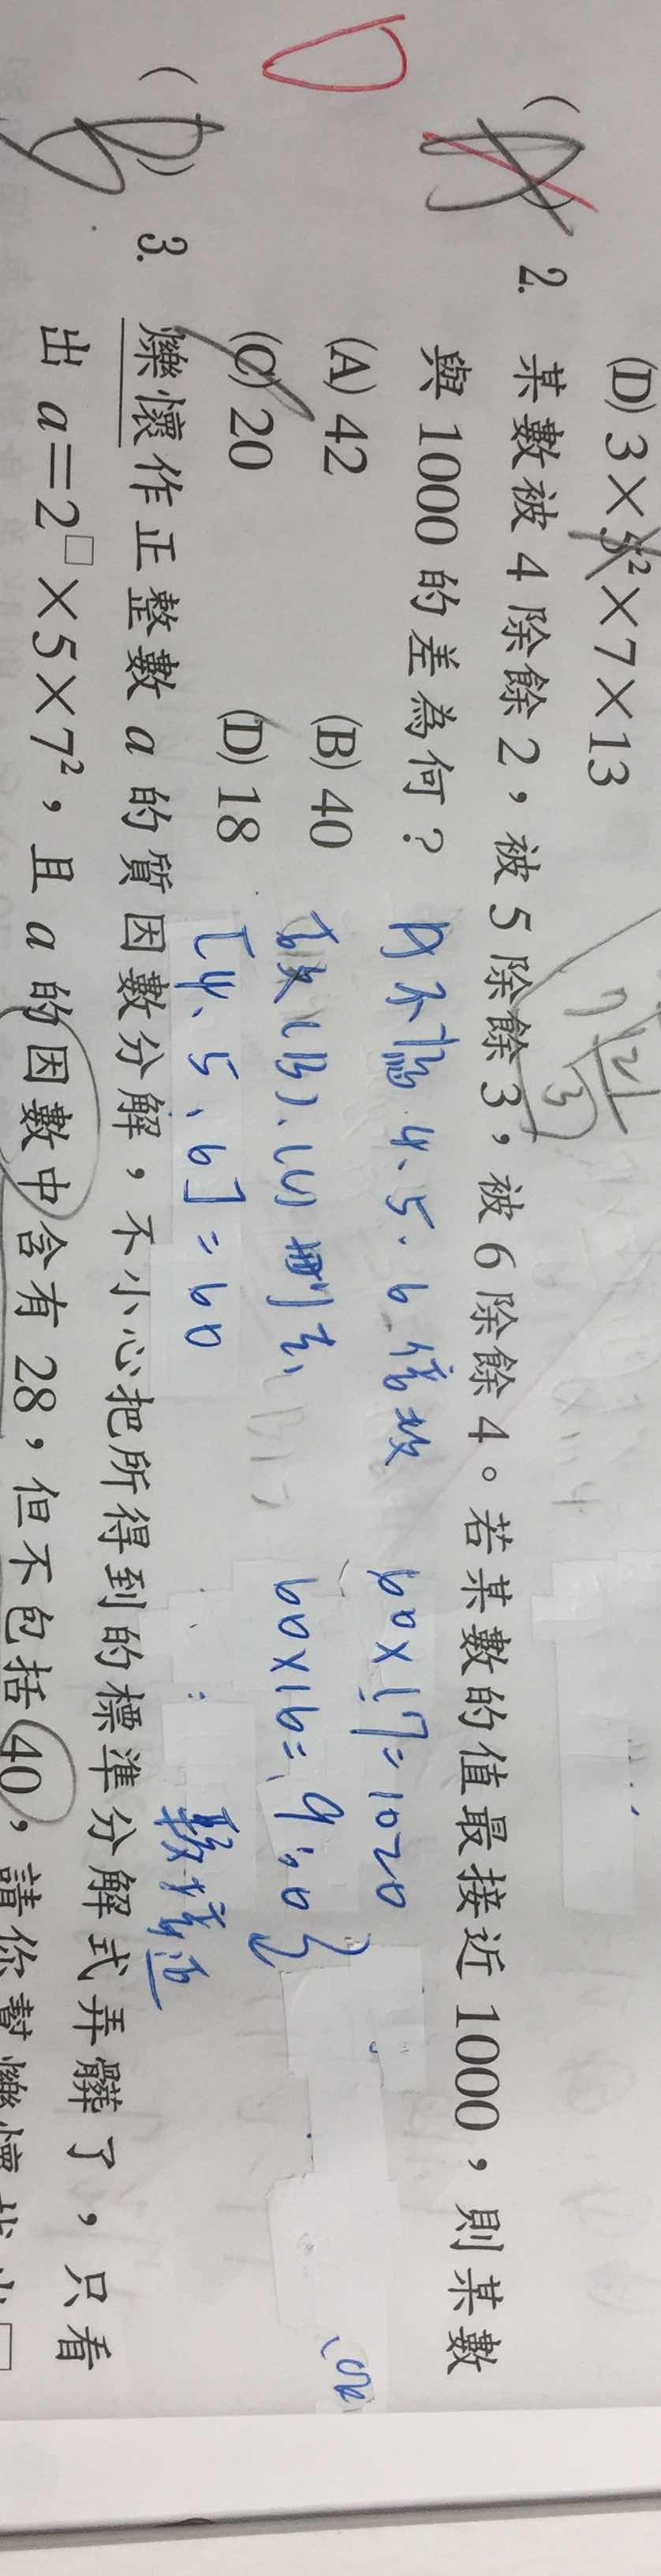 (D) 3×5²×7×13
2. 某數被 4 除餘 2，被 5 除餘 3，被 6 除餘 4。若某數的值最接近 1000，則某數
與 1000 的差為何？
(A) 42
(B) 40
(C) 20
(D) 18
60×17=1020
(B)、(C) 刪去
60×16=
[4、5、6]=60
3. 爍懷作正整數 a 的質因數分解，不小心把所得到的標準分解式弄髒了，只看
出 a=2□×5×7²，且 a 的因數中含有 28，但不包括 40，請你幫爍懷找出□